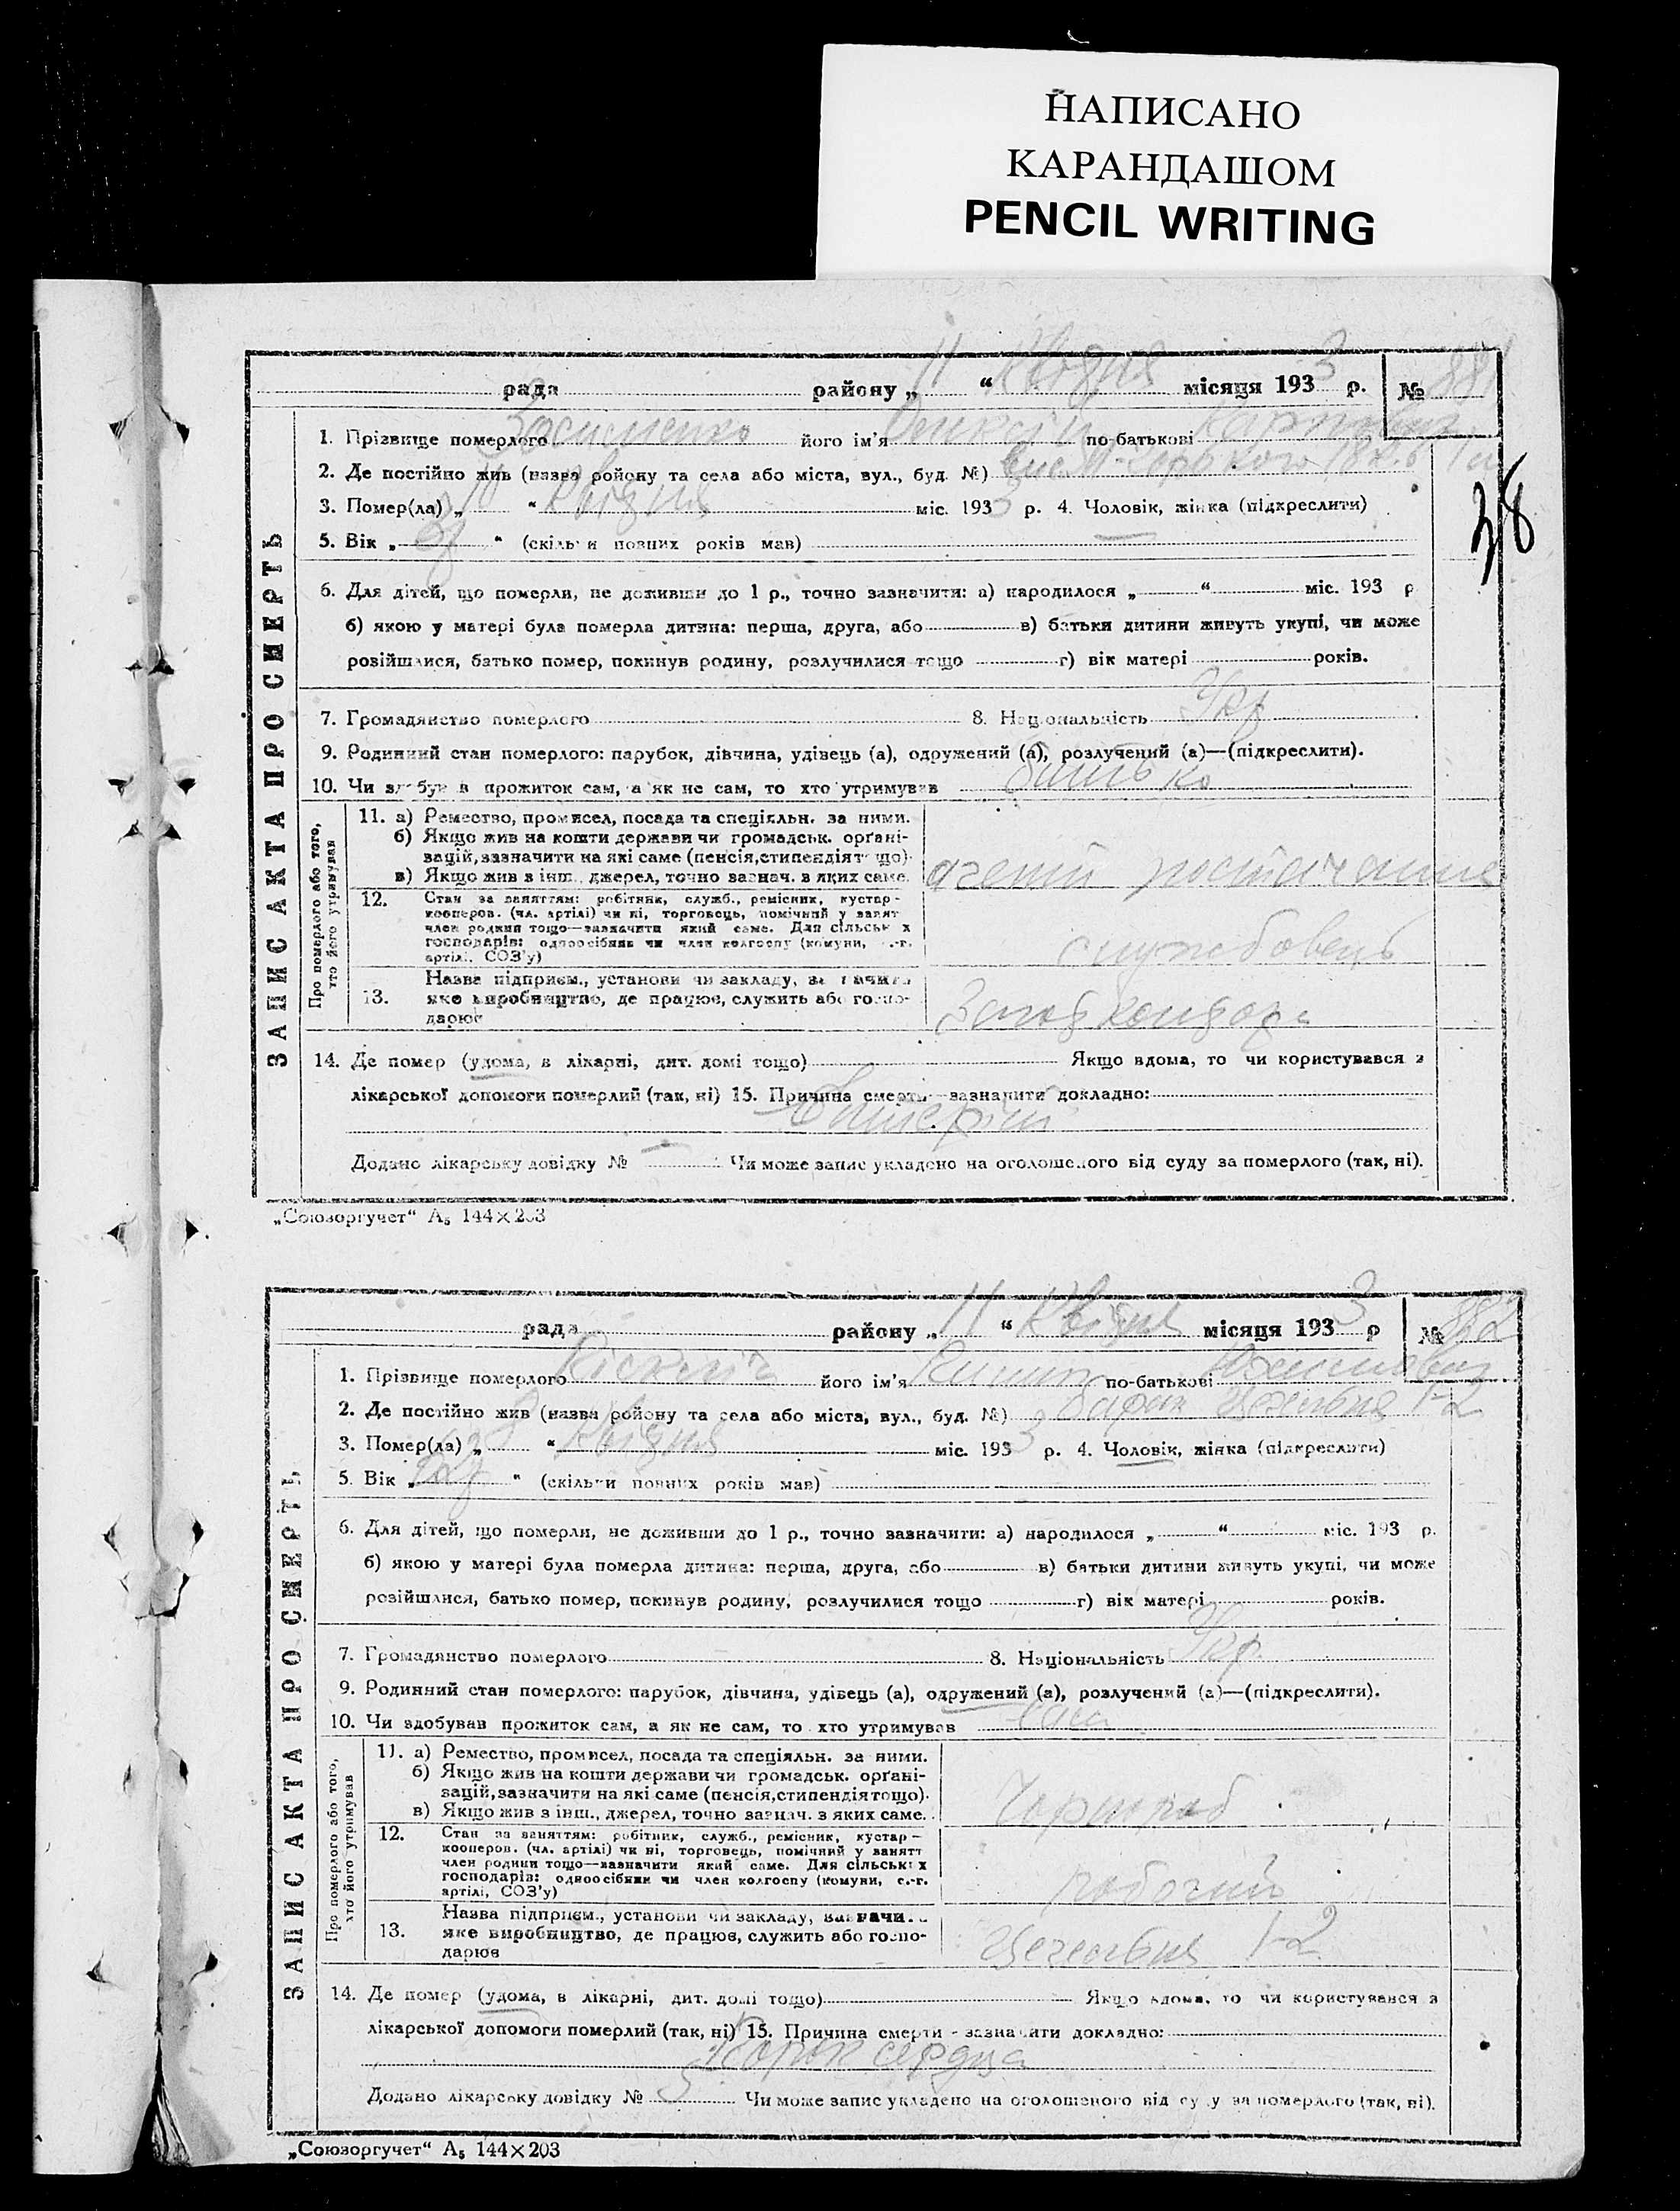 НАПИСАНО
КАРАНДАШОМ
PENCIL WRITING
рада району „ 11 “ Квітня місяця 193 3 р. № 881
1. Прізвище померлого його ім'я по-батькові Карпович
2. Де постійно жив (назва ройону та села або міста, вул., буд. №)
3. Помер(ла) „ “ Квітня міс. 193 3 р. 4. Чоловік, жінка (підкреслити)
38
5. Вік „ “ (скільки повних років мав)
6. Для дітей, що померли, не доживши до 1 р., точно зазначити: а) народилося „ “ міс. 193 р
б) якою у матері була померла дитина: перша, друга, або в) батьки дитини живуть укупі, чи може
розійшлися, батько помер, покинув родину, розлучилися тощо г) вік матері років.
7. Громадянство померлого 8. Національність Укр
9. Родинний стан померлого: парубок, дівчина, удівець (а), одружений (а), розлучений (а)—(підкреслити).
10. Чи здобував прожиток сам, а як не сам, то хто утримував батько
ЗАПИС АКТА ПРО СМЕРТЬ
Про померлого або того, хто його утримував
11. а) Ремество, промисел, посада та спеціяльн. за ними.
б) Якщо жив на кошти держави чи громадськ. орґані-
зацій, зазначити на які саме (пенсія, стипендія тощо).
в) Якщо жив з інш., джерел, точно зазнач. з яких саме.
агент постачання
12. Стан за заняттям: робітник, служб., ремісник, кустар-
кооперов. (чл. артілі) чи ні, торговець, помічний у занят
член родини тощо—зазначити який саме. Для сільськ х
господарів: одноосібник чи член колгоспу (комуни, с.-г.
артілі, СОЗ'у)
службовець
13. Назва підприєм., установи чи закладу, зазначити
яке виробництво, де працює, служить або госпо-
дарює
14. Де помер (удома, в лікарні, дит. домі тощо) Якщо вдома, то чи користувався з
лікарської допомоги померлий (так, ні) 15. Причина смерти—зазначити докладно:
Додано лікарську довідку № Чи може запис укладено на оголошеного від суду за померлого (так, ні).
„Союзоргучет“ А₅ 144×203
рада району „ 11 “ Квітня місяця 193 3 р № 882
1. Прізвище померлого його ім'я по-батькові
2. Де постійно жив (назва ройону та села або міста, вул., буд. №) 1-2
3. Помер(ла) „ “ Квітня міс. 193 3 р. 4. Чоловік, жінка (підкреслити)
5. Вік „ “ (скільки повних років мав)
6. Для дітей, що померли, не доживши до 1 р., точно зазначити: а) народилося „ “ міс. 193 р.
б) якою у матері була померла дитина: перша, друга, або в) батьки дитини живуть укупі, чи може
розійшлися, батько помер, покинув родину, розлучилися тощо г) вік матері років.
7. Громадянство померлого 8. Національність Укр.
9. Родинний стан померлого: парубок, дівчина, удівець (а), одружений (а), розлучений (а)—(підкреслити).
10. Чи здобував прожиток сам, а як не сам, то хто утримував сам
ЗАПИС АКТА ПРО СМЕРТЬ
Про померлого або того, хто його утримував
11. а) Ремество, промисел, посада та спеціяльн. за ними.
б) Якщо жив на кошти держави чи громадськ. орґані-
зацій, зазначити на які саме (пенсія, стипендія тощо).
в) Якщо жив з інш., джерел, точно зазнач. з яких саме.
Чорнороб
12. Стан за заняттям: робітник, служб., ремісник, кустар—
кооперов. (чл. артілі) чи ні, торговець, помічний у занятт
член родини тощо—зазначити який саме. Для сільськ х
господарів: одноосібник чи член колгоспу (комуни, с.-г.
артілі, СОЗ'у)
робочий
13. Назва підприєм., установи чи закладу, зазначи
яке виробництво, де працює, служить або госпо-
дарює
1-2
14. Де помер (удома, в лікарні, дит. домі тощо) Якщо вдома, то чи користувався з
лікарської допомоги померлий (так, ні) 15. Причина смерти - зазначити докладно:
Порок сердца
Додано лікарську довідку № Чи може запис укладено на оголошеного від суду за померлого (так, ні).
„Союзоргучет“ А₅ 144×203